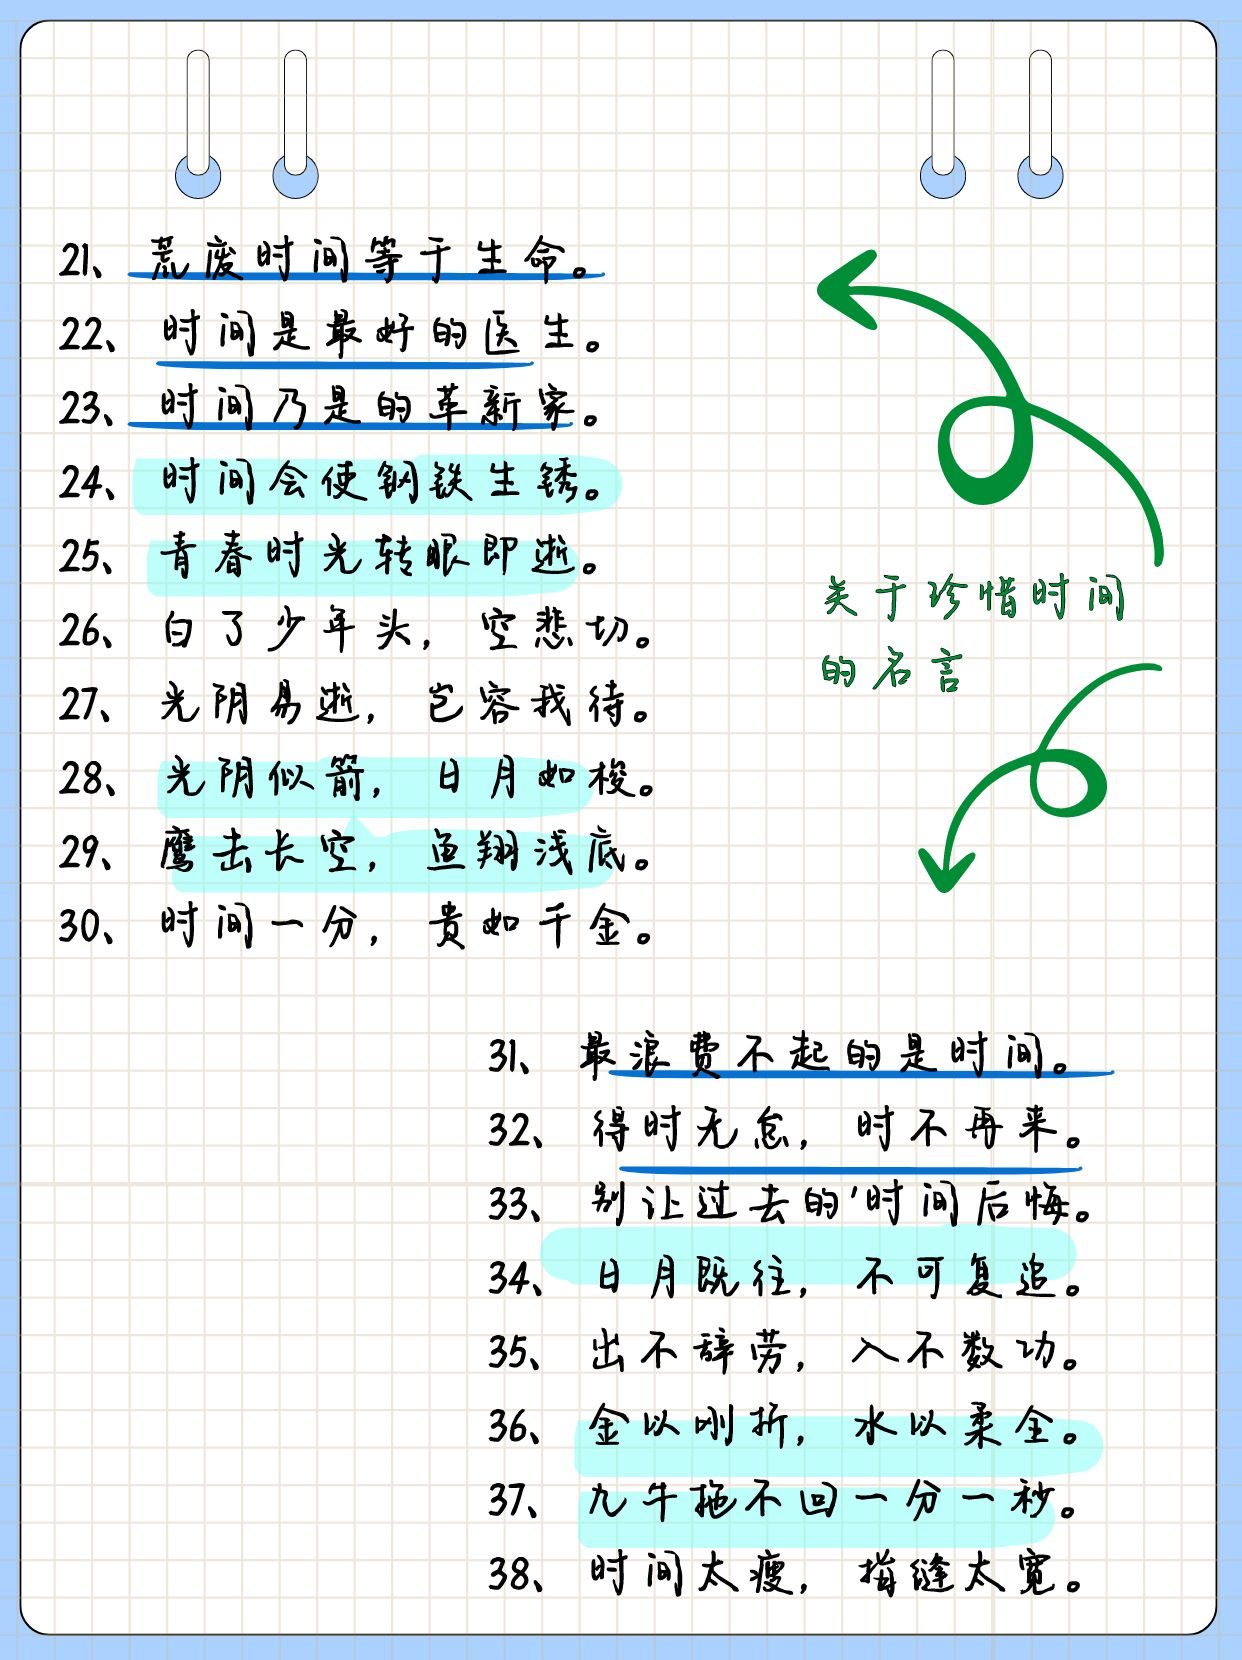 21、荒废时间等于生命。
22、时间是最好的医生。
23、时间乃是的革新家。
24、时间会使钢铁生锈。
25、青春时光转眼即逝。
26、白了少年头,空悲切。
27、光阴易逝,岂容我待。
28、光阴似箭,日月如梭。
29、鹰击长空,鱼翔浅底。
30、时间一分,贵如千金。
关于珍惜时间
的名言
31、最浪费不起的是时间。
32、得时无怠,时不再来。
33、别让过去的'时间后悔。
34、日月既往,不可复追。
35、出不辞劳,入不数功。
36、金以刚折,水以柔全。
37、九牛拖不回一分一秒。
38、时间太瘦,指缝太宽。